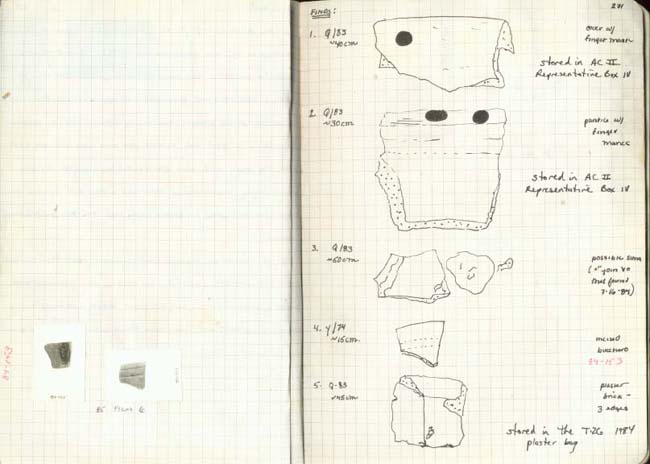 84-153
85 Film 6
271
Finds:
1. Q/83
~40cm
over w/
finger
stored in AC II
Representative Box IV
2. Q/83
~30cm
w/
finger
marks
stored in AC II
Representative Box IV
3. Q/83
~60cm
possible
("join to
that found
7-16-84)
4. Y/74
~15cm
incised
bucchero
84-153
5. Q-83
~45cm
plaster
brick -
3 edges
stored in the T26 1984
plaster bag